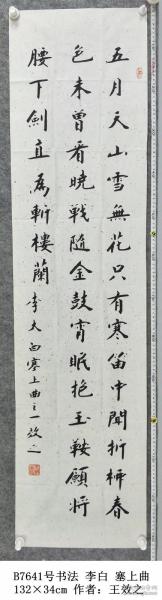 五月天山雪無花只有寒笛中聞折柳春
色未曾看曉戰隨金鼓宵眠抱玉鞍願將
腰下劍直為斬樓蘭
李太白塞上曲之一效之
B7641号书法 李白 塞上曲
132×34cm 作者：王效之